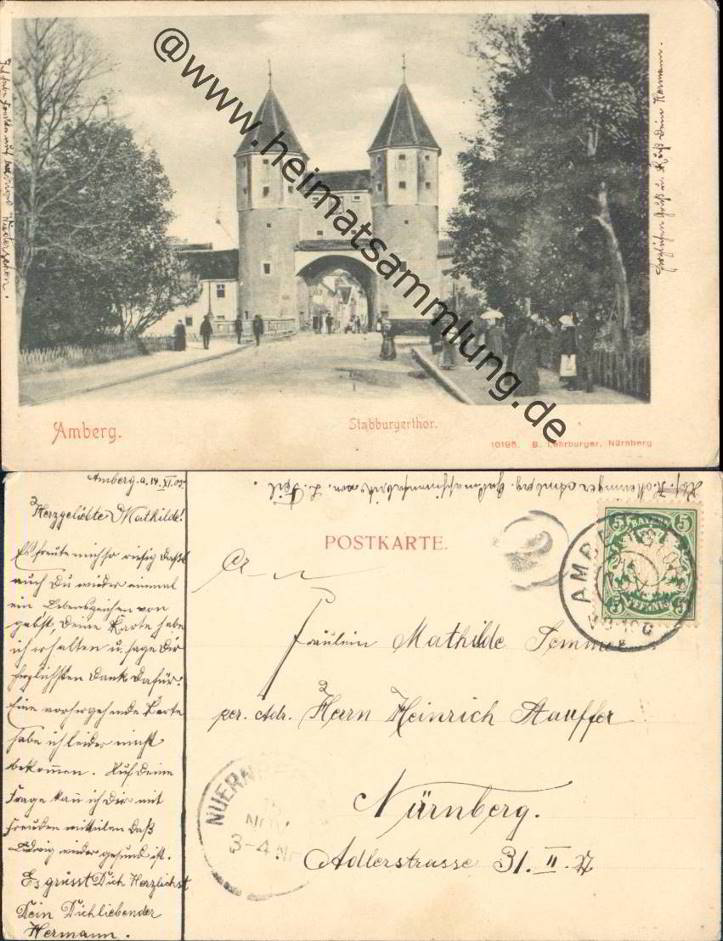 @www.heimatsammlung.de
Herzlichen Gruß u. Kuß Dein Hermann.
Amberg.
Stabburgerthor.
10195. B. Lehrburger, Nürnberg
Amberg a. 14. XI. 05.
Herzgeliebte Mathilde!
Es freute mich so riesig daß
auch Du wieder einmal
ein Lebenszeichen von
gabst, Deine Karte habe
ich erhalten u. sage Dir
herzlichsten Dank dafür.
Eine vorhergehende Karte
habe ich leider nicht
bekommen. Auf Deine
Frage kan̄ ich Dir mit
Freuden mitteilen daß
Ludwig wieder gesund ist.
Es grüsst Dich Herzlichst
Dein Dichliebender
Hermann.
POSTKARTE.
BAYERN
5 5
PFENNIG
AMBERG
2
Fräulein Mathilde
per. Adr. Herrn Heinrich Hauffer
Nürnberg.
Adlerstrasse 31. II.
NUERN
NOV
3-4 N